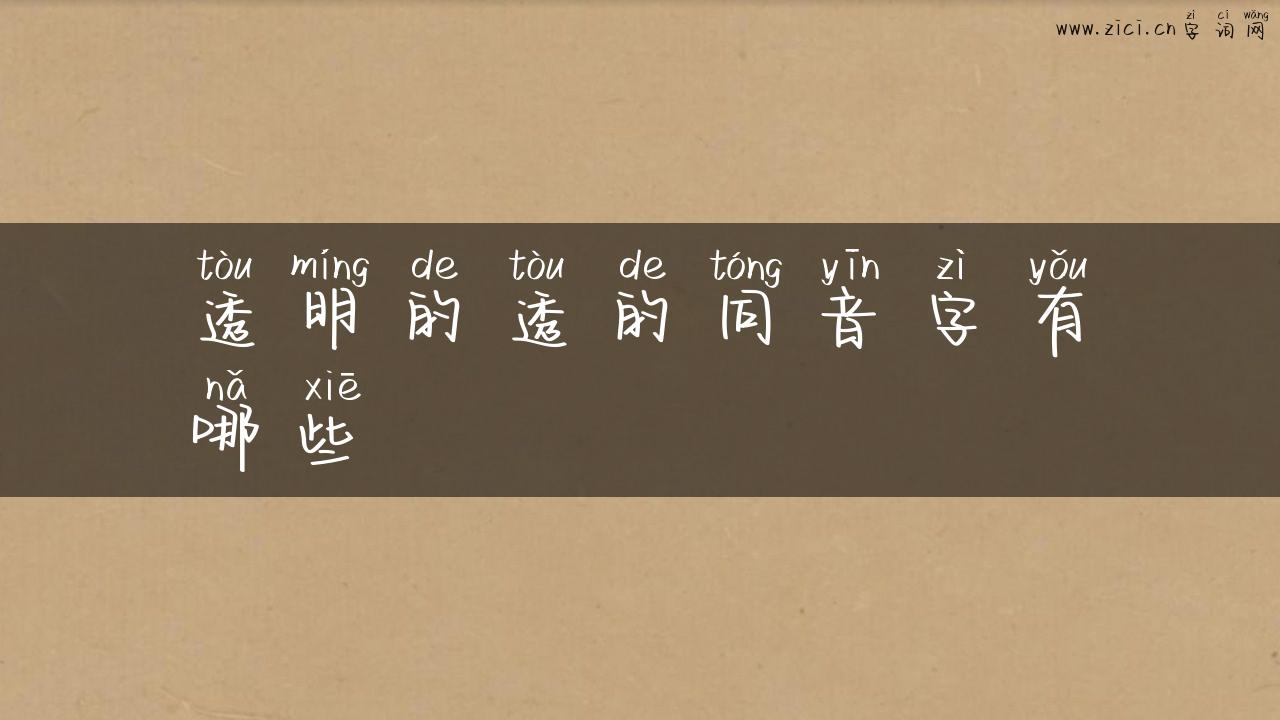 zì cí wǎng
www.zici.cn 字词网
tòu míng de tòu de tóng yīn zì yǒu
透明的透的同音字有
nǎ xiē
哪些